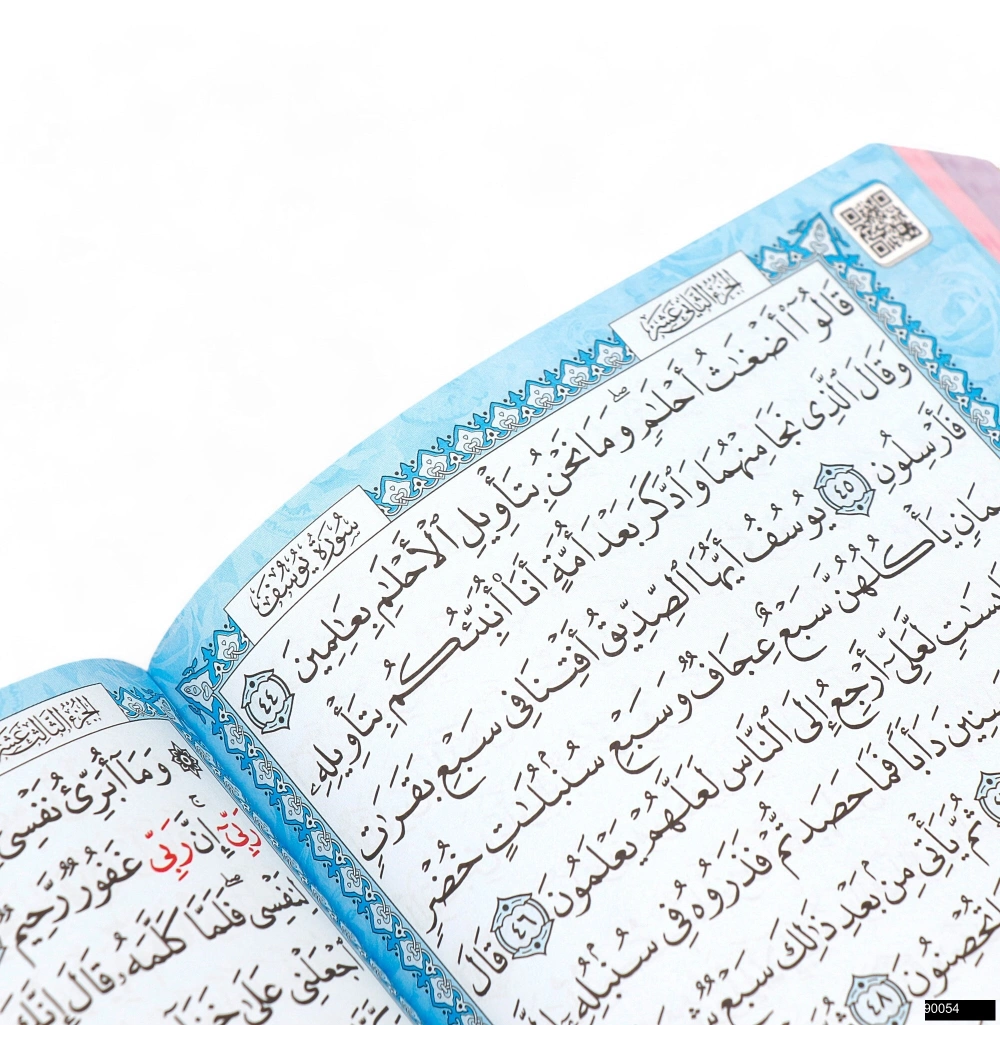 الجزء الثاني عشر
سورة يوسف
قَالُوٓا۟ أَضْغَـٰثُ أَحْلَـٰمٍ ۖ وَمَا نَحْنُ بِتَأْوِيلِ ٱلْأَحْلَـٰمِ بِعَـٰلِمِينَ ٤٤
وَقَالَ ٱلَّذِى نَجَا مِنْهُمَا وَٱدَّكَرَ بَعْدَ أُمَّةٍ أَنَا۠ أُنَبِّئُكُم بِتَأْوِيلِهِۦ
فَأَرْسِلُونِ ٤٥ يُوسُفُ أَيُّهَا ٱلصِّدِّيقُ أَفْتِنَا فِى سَبْعِ بَقَرَٰتٍ
مَانٍ يَأْكُلُهُنَّ سَبْعٌ عِجَافٌ وَسَبْعِ سُنۢبُلَـٰتٍ خُضْرٍ
لَّعَلِّىٓ أَرْجِعُ إِلَى ٱلنَّاسِ لَعَلَّهُمْ يَعْلَمُونَ ٤٦ قَالَ
سِنِينَ دَأَبًا فَمَا حَصَدتُّمْ فَذَرُوهُ فِى سُنۢبُلِهِۦٓ
ثُمَّ يَأْتِى مِنۢ بَعْدِ ذَٰلِكَ سَبْعٌ
تُحْصِنُونَ ٤٨
الجزء الثالث عشر
وَمَآ أُبَرِّئُ نَفْسِىٓ
رَبِّىٓ إِنَّ رَبِّى غَفُورٌ رَّحِيمٌ
لِنَفْسِى فَلَمَّا كَلَّمَهُۥ قَالَ إِنَّكَ
ٱجْعَلْنِى عَلَىٰ
90054